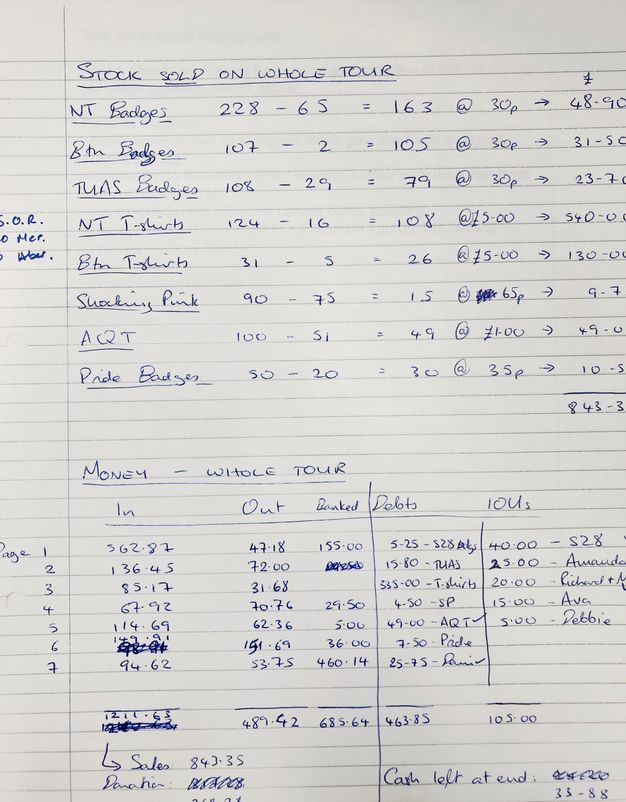 STOCK SOLD ON WHOLE TOUR
£
NT Badges 228 - 65 = 163 @ 30p → 48-90
Btn Badges 107 - 2 = 105 @ 30p → 31-50
TUAS Badges 108 - 29 = 79 @ 30p → 23-70
S.O.R. NT T-shirts 124 - 16 = 108 @ £5-00 → 540-0
Mer.
Aber. Btn T-shirts 31 - 5 = 26 @ £5-00 → 130-00
Shocking Pink 90 - 75 = 15 @ 65p → 9-7
AQT 100 - 51 = 49 @ £1.00 → 49-0
Pride Badges 50 - 20 = 30 @ 35p → 10-5
843-3
MONEY - WHOLE TOUR
In Out Banked Debts IOUs
Page 1 562.87 47.18 155.00 5-25 - S28 40.00 - S28
2 136.45 72.00 15.80 - TUAS 25.00 - Amanda
3 85.17 31.68 335-00 - T.shirts 20.00 - Richard + M
4 67.92 70.76 29.50 4.50 - SP 15.00 - Ava
5 114.69 62.36 5.00 49.00 - AQT ✓ 5.00 - Debbie
6 149.91 151.69 36.00 7.50 - Pride
7 94.62 53.75 460.14 25-75 -
1211.63 489.42 685.64 463.85 105.00
↳ Sales: 843.35
Donation: Cash left at end:
33-88